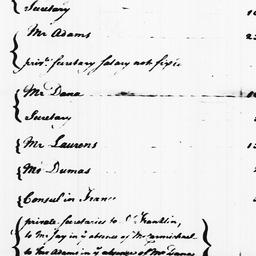 Secretary
Mr Adams
priv. Secretary Salary not fixed
Mr Dana
Secretary
Mr Laurens
Mr Dumas
Consul in France
private Secretaries to Dr Franklin,
to Mr Jay in ye absence of Mr Carmichael
to Mr Adams in ye absence of Mr Dana